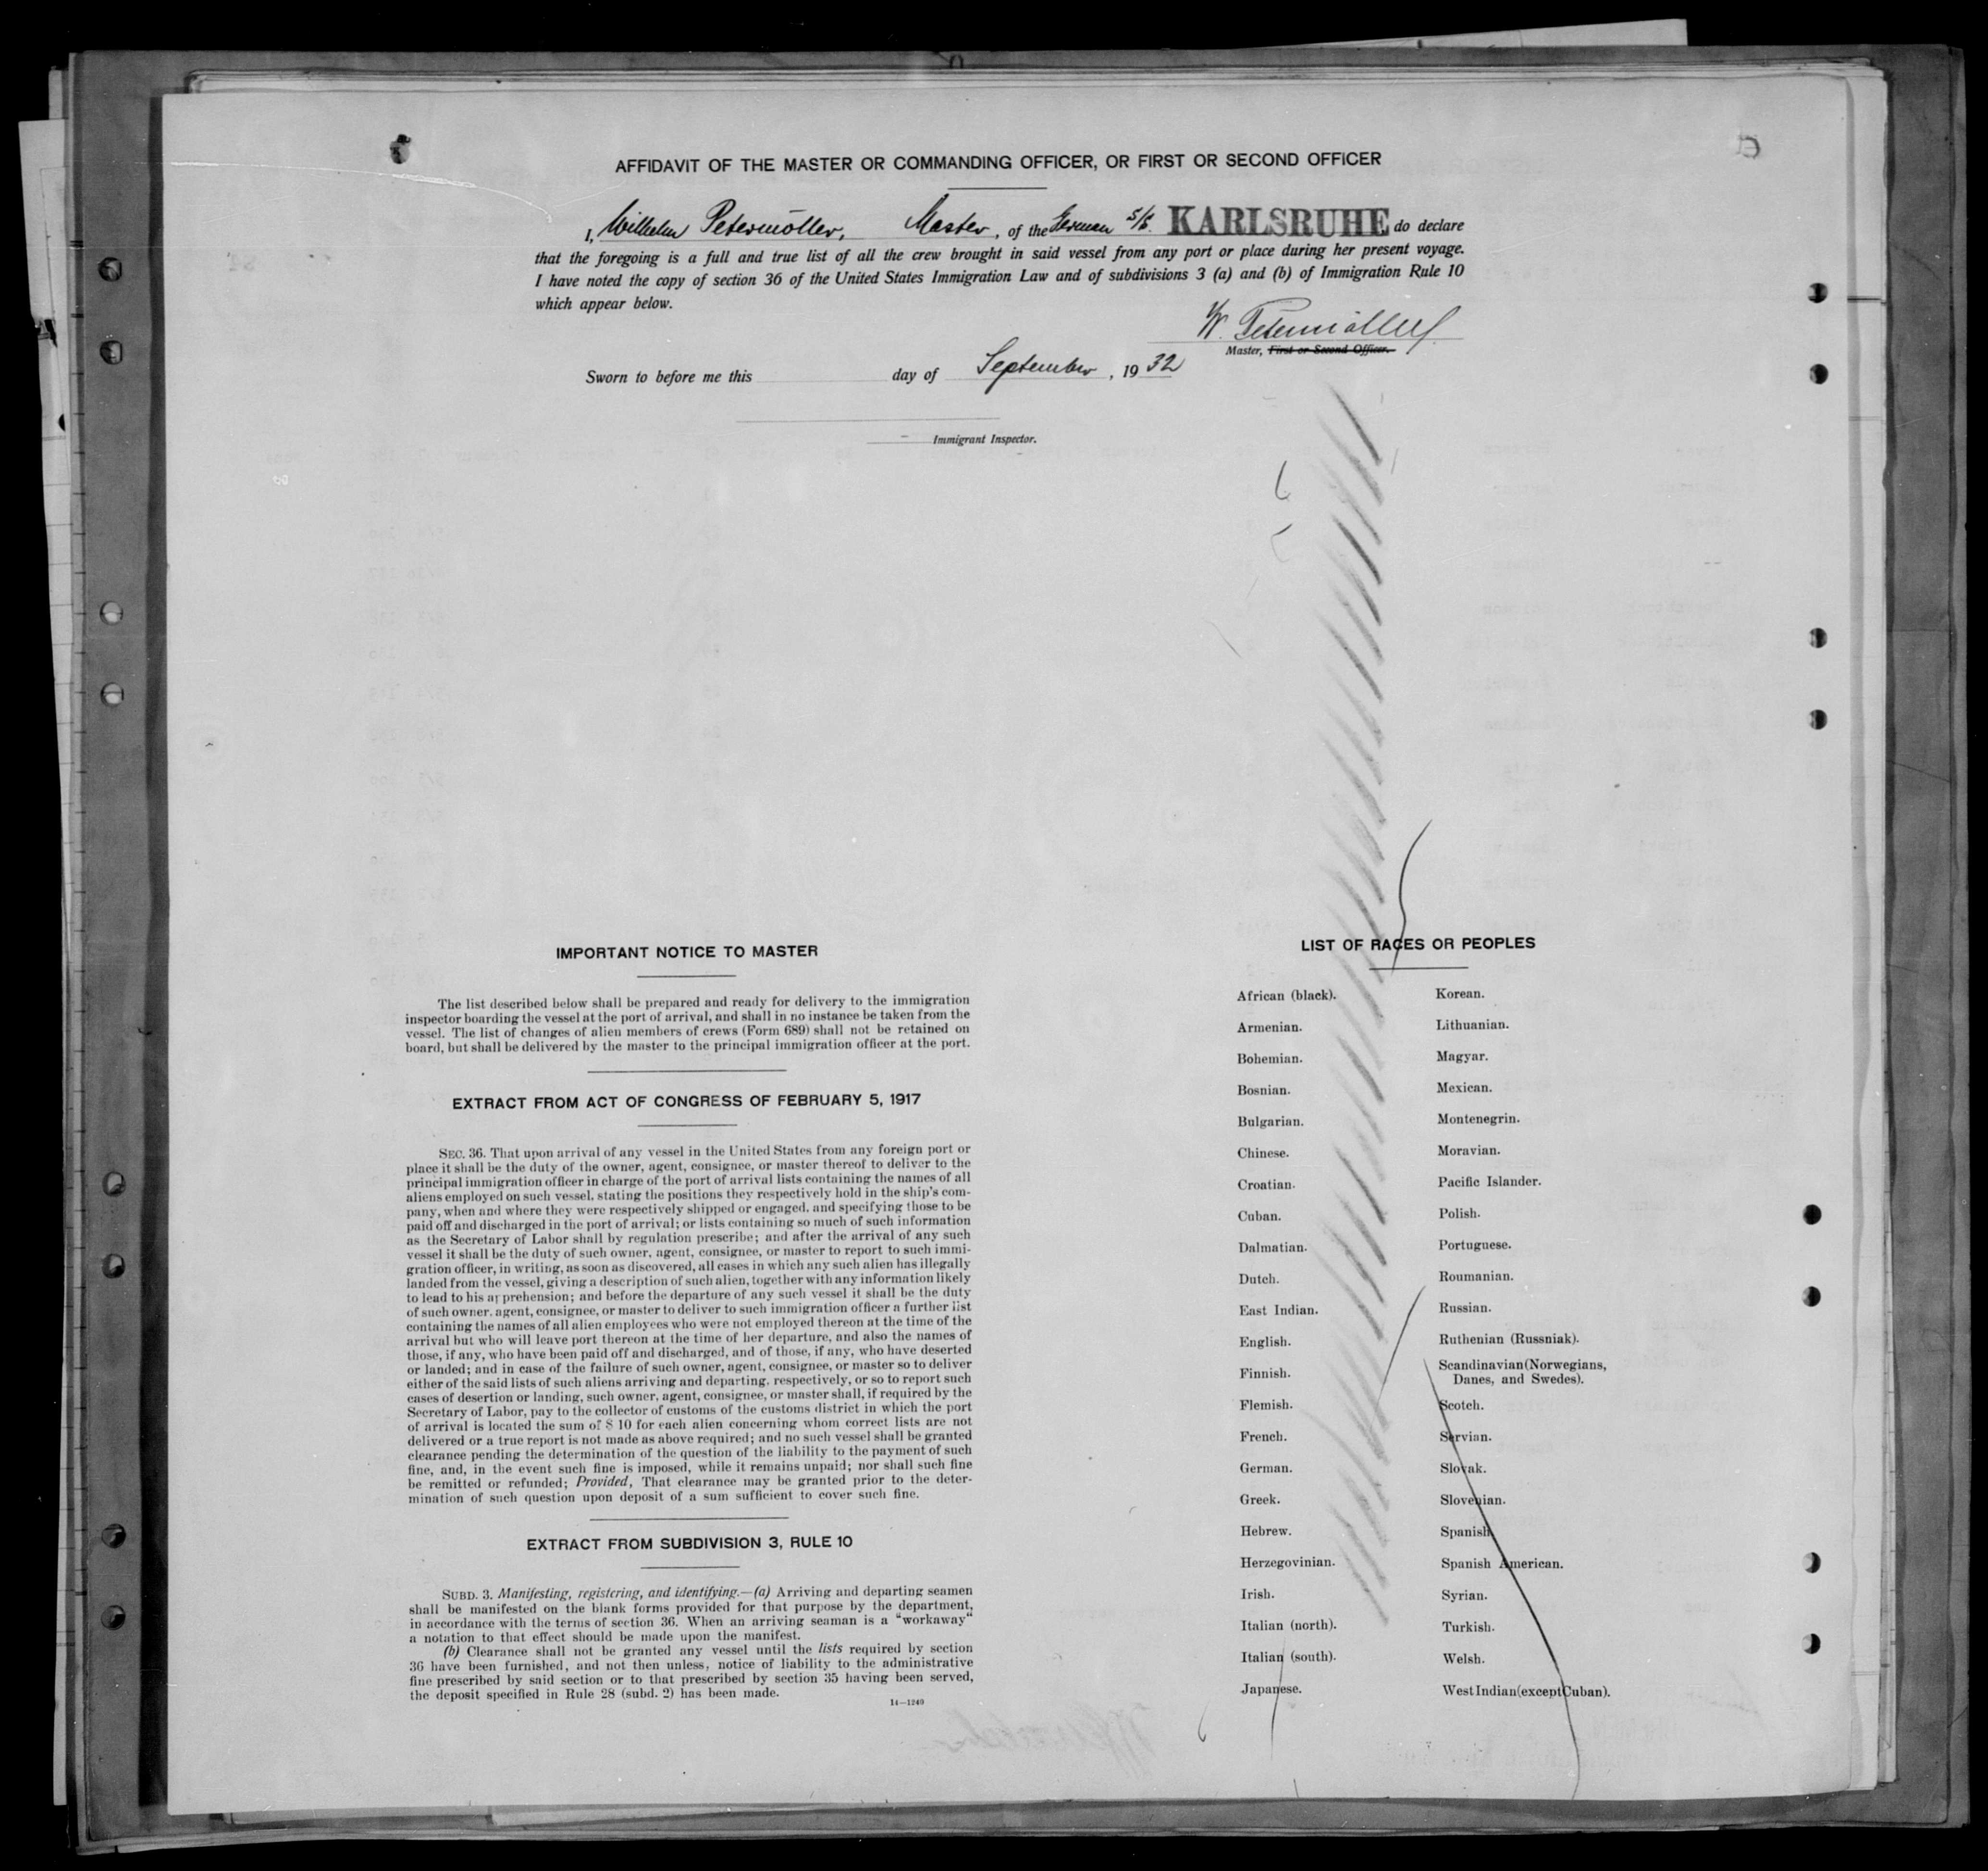 AFFIDAVIT OF THE MASTER OR COMMANDING OFFICER, OR FIRST OR SECOND OFFICER
I, Wilhelm Petermöller, Master, of the German S/S. KARLSRUHE do declare
that the foregoing is a full and true list of all the crew brought in said vessel from any port or place during her present voyage.
I have noted the copy of section 36 of the United States Immigration Law and of subdivisions 3 (a) and (b) of Immigration Rule 10
which appear below.
W. Petermöller
Master, First or Second Officer.
Sworn to before me this day of September, 1932
Immigrant Inspector.
IMPORTANT NOTICE TO MASTER
The list described below shall be prepared and ready for delivery to the immigration
inspector boarding the vessel at the port of arrival, and shall in no instance be taken from the
vessel. The list of changes of alien members of crews (Form 689) shall not be retained on
board, but shall be delivered by the master to the principal immigration officer at the port.
EXTRACT FROM ACT OF CONGRESS OF FEBRUARY 5, 1917
SEC. 36. That upon arrival of any vessel in the United States from any foreign port or
place it shall be the duty of the owner, agent, consignee, or master thereof to deliver to the
principal immigration officer in charge of the port of arrival lists containing the names of all
aliens employed on such vessel, stating the positions they respectively hold in the ship's com-
pany, when and where they were respectively shipped or engaged, and specifying those to be
paid off and discharged in the port of arrival; or lists containing so much of such information
as the Secretary of Labor shall by regulation prescribe; and after the arrival of any such
vessel it shall be the duty of such owner, agent, consignee, or master to report to such immi-
gration officer, in writing, as soon as discovered, all cases in which any such alien has illegally
landed from the vessel, giving a description of such alien, together with any information likely
to lead to his apprehension; and before the departure of any such vessel it shall be the duty
of such owner, agent, consignee, or master to deliver to such immigration officer a further list
containing the names of all alien employees who were not employed thereon at the time of the
arrival but who will leave port thereon at the time of her departure, and also the names of
those, if any, who have been paid off and discharged, and of those, if any, who have deserted
or landed; and in case of the failure of such owner, agent, consignee, or master so to deliver
either of the said lists of such aliens arriving and departing, respectively, or so to report such
cases of desertion or landing, such owner, agent, consignee, or master shall, if required by the
Secretary of Labor, pay to the collector of customs of the customs district in which the port
of arrival is located the sum of $ 10 for each alien concerning whom correct lists are not
delivered or a true report is not made as above required; and no such vessel shall be granted
clearance pending the determination of the question of the liability to the payment of such
fine, and, in the event such fine is imposed, while it remains unpaid; nor shall such fine
be remitted or refunded; Provided, That clearance may be granted prior to the deter-
mination of such question upon deposit of a sum sufficient to cover such fine.
EXTRACT FROM SUBDIVISION 3, RULE 10
SUBD. 3. Manifesting, registering, and identifying.—(a) Arriving and departing seamen
shall be manifested on the blank forms provided for that purpose by the department,
in accordance with the terms of section 36. When an arriving seaman is a "workaway"
a notation to that effect should be made upon the manifest.
(b) Clearance shall not be granted any vessel until the lists required by section
36 have been furnished, and not then unless, notice of liability to the administrative
fine prescribed by said section or to that prescribed by section 35 having been served,
the deposit specified in Rule 28 (subd. 2) has been made.
14—1240
LIST OF RACES OR PEOPLES
African (black).
Armenian.
Bohemian.
Bosnian.
Bulgarian.
Chinese.
Croatian.
Cuban.
Dalmatian.
Dutch.
East Indian.
English.
Finnish.
Flemish.
French.
German.
Greek.
Hebrew.
Herzegovinian.
Irish.
Italian (north).
Italian (south).
Japanese.
Korean.
Lithuanian.
Magyar.
Mexican.
Montenegrin.
Moravian.
Pacific Islander.
Polish.
Portuguese.
Roumanian.
Russian.
Ruthenian (Russniak).
Scandinavian (Norwegians,
Danes, and Swedes).
Scotch.
Servian.
Slovak.
Slovenian.
Spanish.
Spanish American.
Syrian.
Turkish.
Welsh.
West Indian (except Cuban).